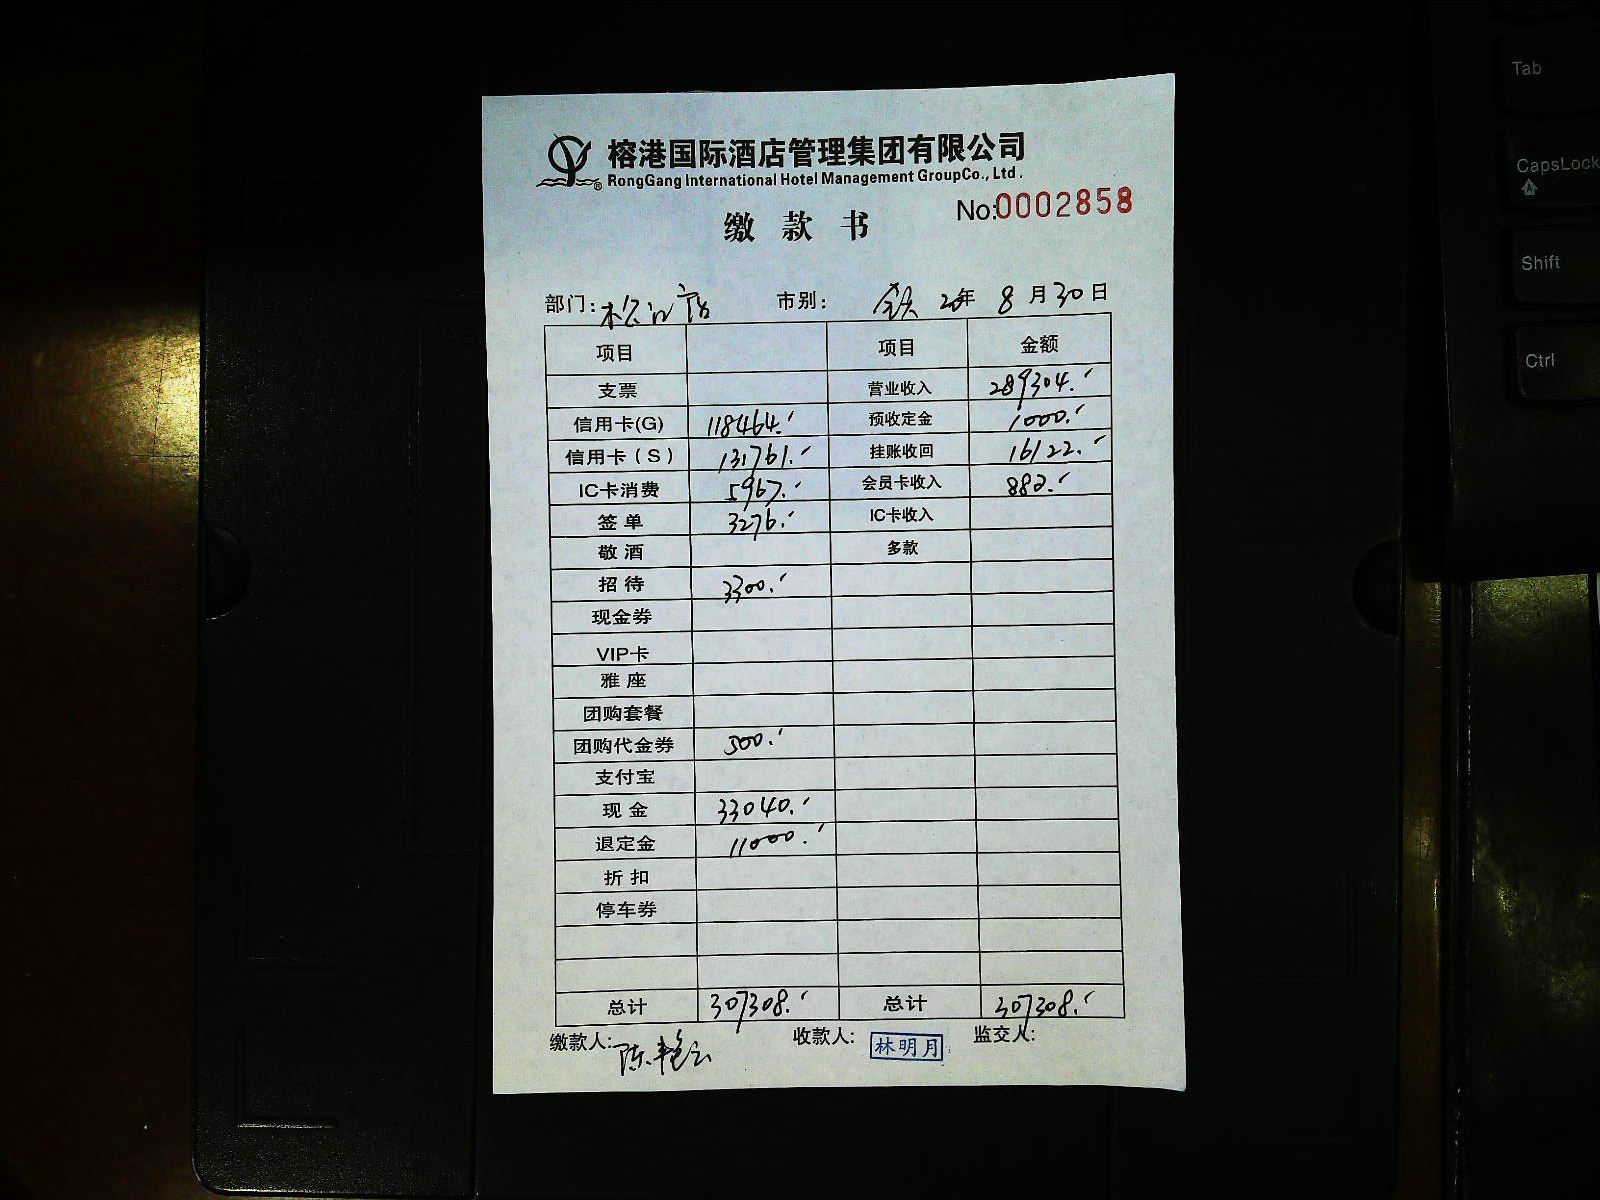 榕港国际酒店管理集团有限公司
RongGang International Hotel Management GroupCo., Ltd.
No:0002858
缴 款 书
部门: 松江店 市别: 年 8 月 30 日
项目 项目 金额
支票 营业收入 289304.
信用卡(G) 118464. 预收定金 1000.
信用卡(S) 131761. 挂账收回 16122.
IC卡消费 5967. 会员卡收入 882.
签 单 3276. IC卡收入
敬 酒 多款
招 待 3300.
现金券
VIP卡
雅 座
团购套餐
团购代金券 500.
支付宝
现 金 33040.
退定金 11000.
折 扣
停车券
总计 307308. 总计 307308.
缴款人: 陈艳云 收款人: 林明月 监交人:
Tab
CapsLock
Shift
Ctrl